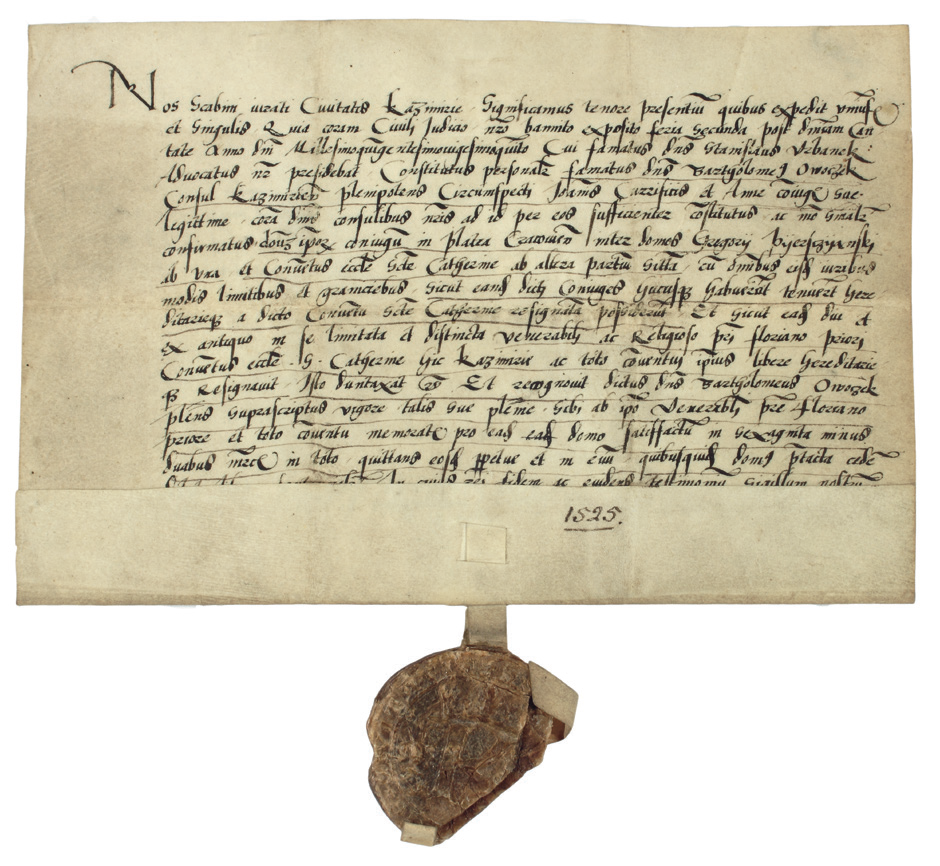 Nos Scabini iurati Civitatis Kazimirie Significamus tenore presentiu quibus expedit
et Singulis Quia coram Civili Judicio nro bannito exposito feria Secunda post dniam Can
tate Anno dni Millesimoquigentesimovigesimoquinto Cui famatus dns Stanislaus Urbanek
Advocatus nr presidebat Constitutus personalr famatus dns Bartholomej Owoczek
Consul Kazimirien plenipotens Circumspecti Joannis Carnificis et Anne coniugu sue
legittime cora dnis consulibus nris ad id per eos sufficienter costitutus ac
confirmatus domu ipor coniugu in Platea Cracovien inter domos Gregorij
ab una et Conventus eccle Scte Catherine ab altera partiu Sitta cu omnibus eisd iuribus
modis limitibus et graniciebus Sicut eand dicti Coniuges hucusq habuerut tenuert here
ditarieq a dicto Conventu Scte Catherine resignata possiderut Et Sicut ead diu et
ex antiquo in se limitata et distincta Venerabili ac Religioso pri floriano priori
Conventus eccle S. Catherine hic Kazimirie ac toto coventui ipius libere hereditarie
q Resignavit Isto duntaxat Et recognovit dictus dns Bartholomeus Owoczek
plens Suprascriptus vigore talis sue plenie Sibi ab ipo Venerabili pre floriano
priore et toto coventu memorato pro ead ead domo satisfactu in Sexaginta minus
duabus mrc in toto quittans eosd ppetue et in evu quibusquid domj ptacta cede
In cuius rei fidem ac evidens testimoniu Sigillum nostru
1525.